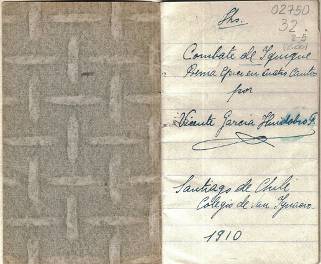 02750
32
Jhs.
Combate de Iquique
Poema Epico en Cuatro Cantos
por
Vicente García Huidobro F.
Santiago de Chile
Colegio de San Ignacio
1910